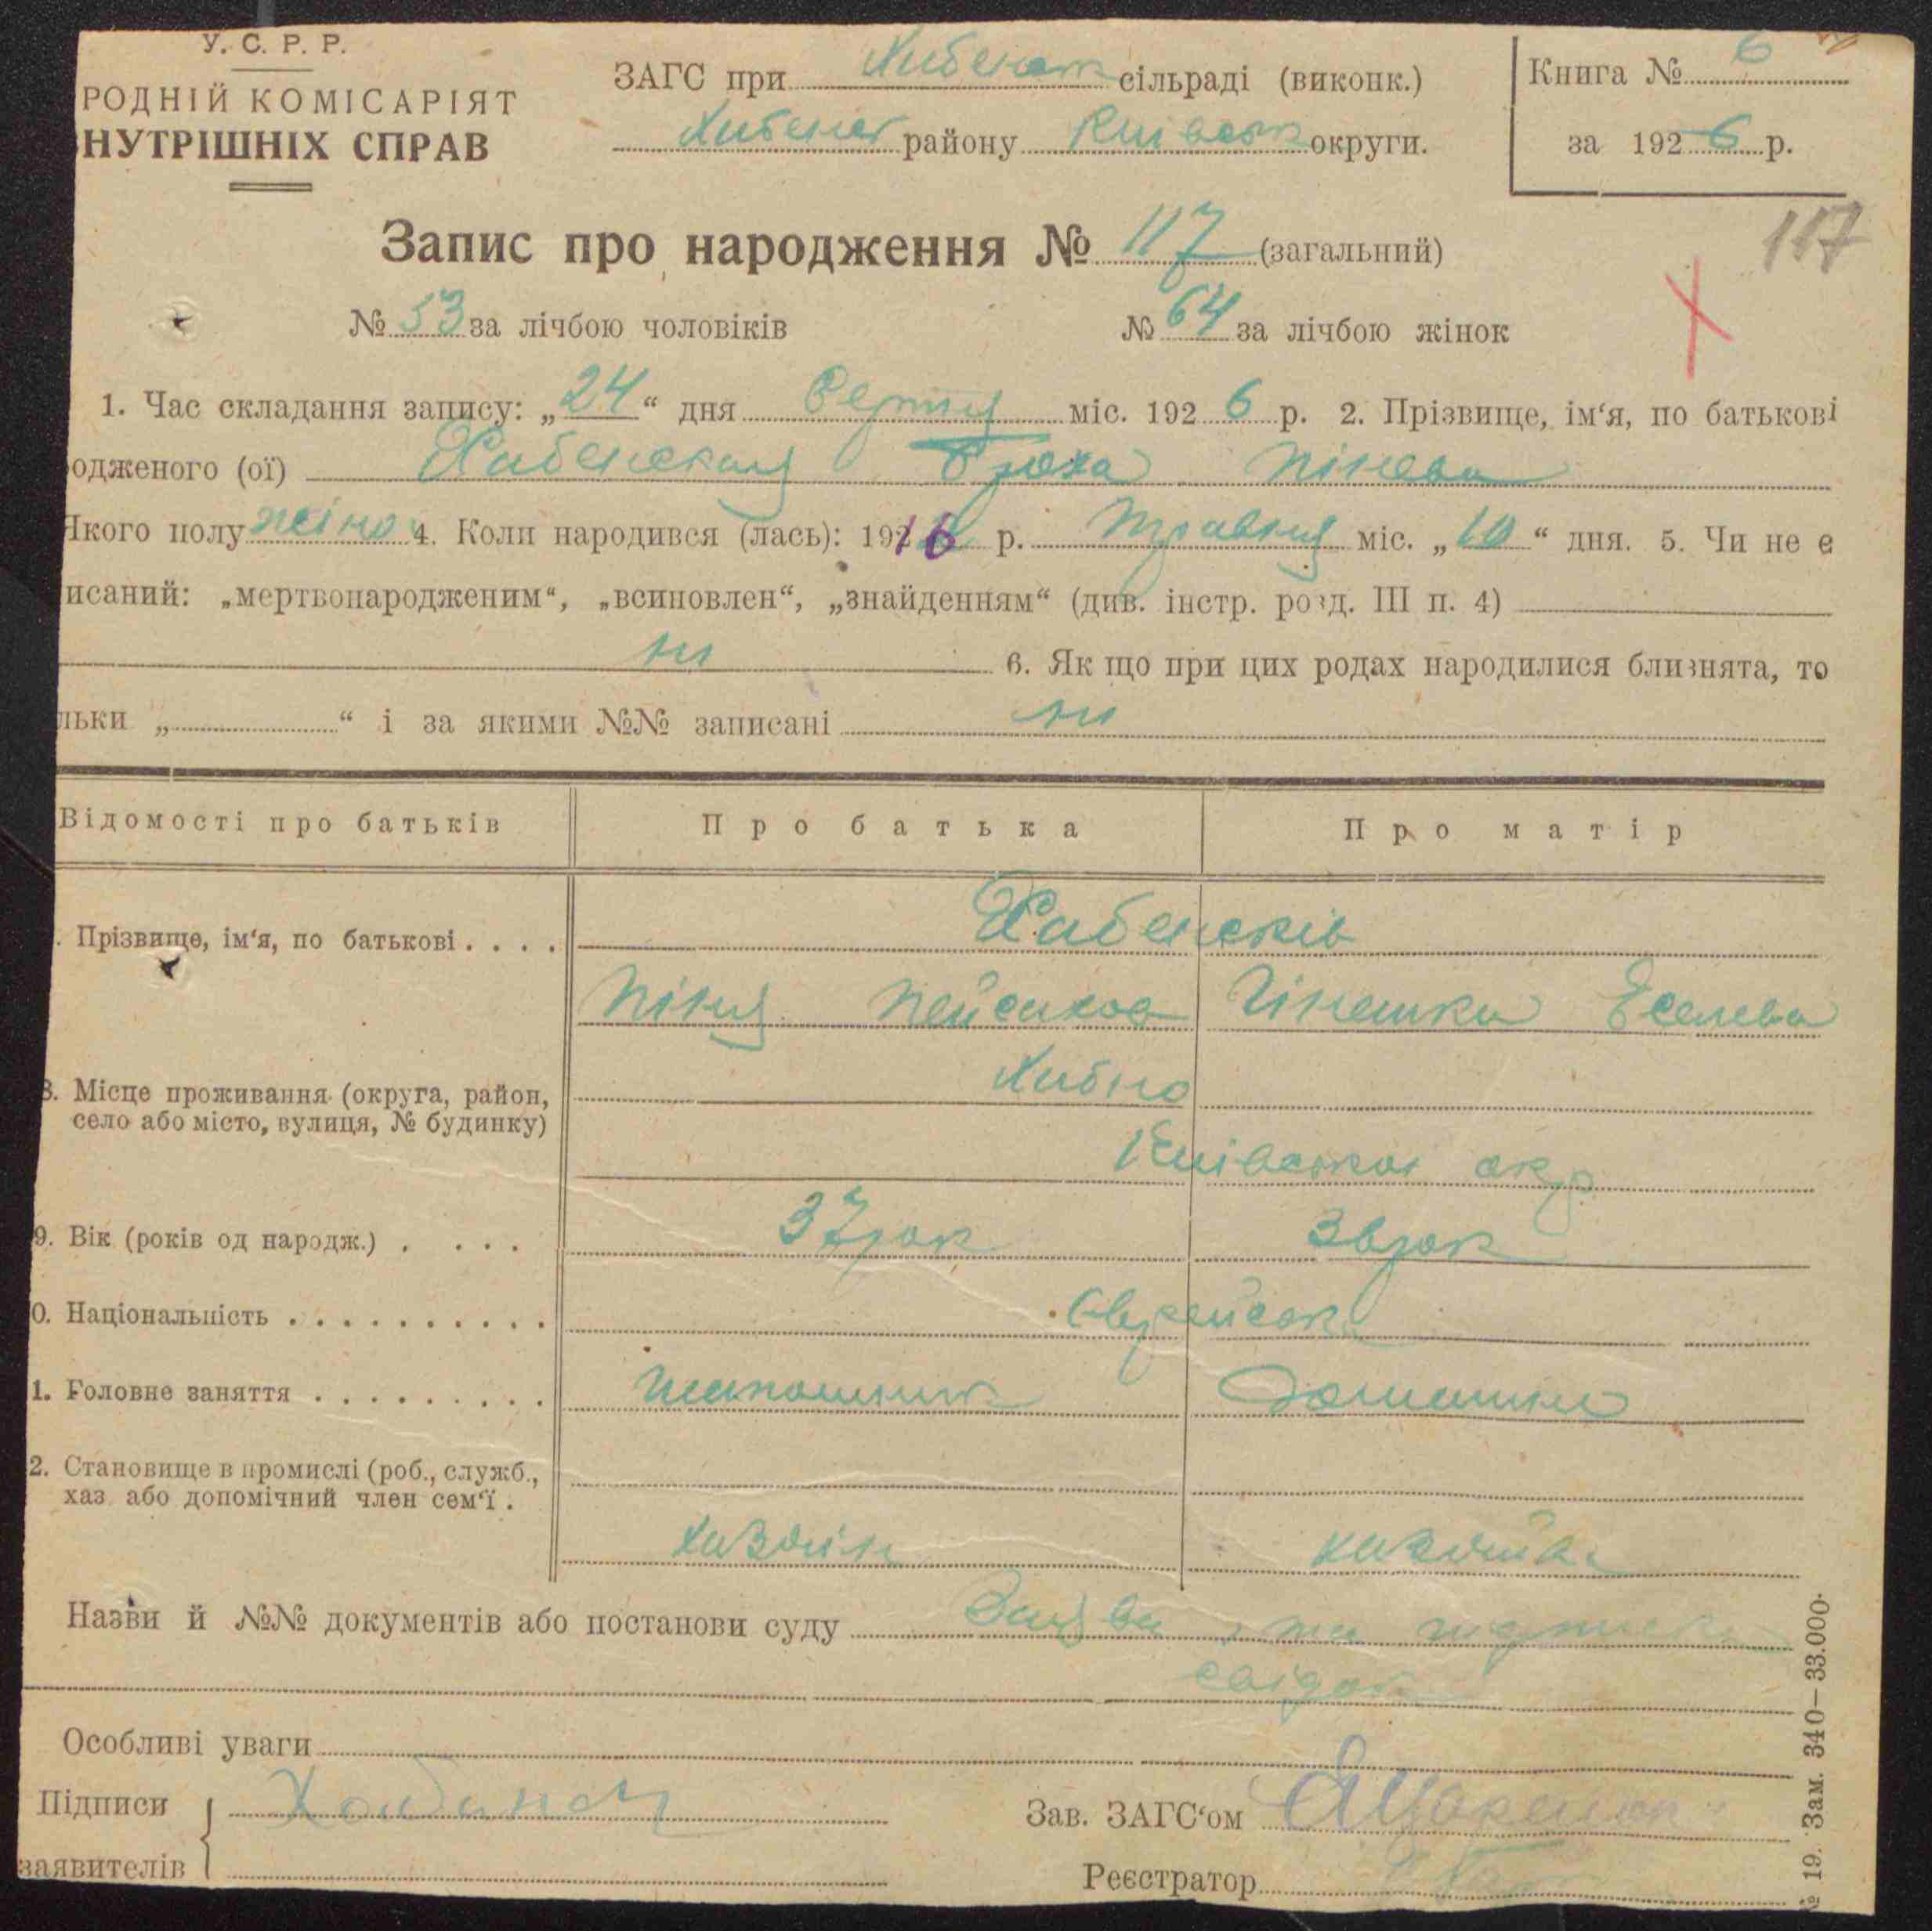 У. С. Р. Р.
РОДНІЙ КОМІСАРІЯТ
НУТРІШНІХ СПРАВ
ЗАГС при Хабенськ сільраді (виконк.)
Хабенськ району Київськ округи.
Книга № 6
за 1926 р.
117
Запис про народження № 117 (загальний)
№ 53 за лічбою чоловіків № 64 за лічбою жінок
1. Час складання запису: „24“ дня Серпня міс. 1926 р. 2. Прізвище, ім‘я, по батькові
одженого (ої) Хабенская Броха Пінева
Якого полу жіноч 4. Коли народився (лась): 1916 р. Травня міс. „10“ дня. 5. Чи не є
исаний: „мертвонародженим“, „всиновлен“, „знайденням“ (див. інстр. розд. III п. 4)
ни 6. Як що при цих родах народилися близнята, то
льки „ “ і за якими №№ записані ни
Відомості про батьків Про батька Про матір
. Прізвище, ім‘я, по батькові . . . . Хабенсків
Піня Пейсахов Гінешка Еселева
8. Місце проживання (округа, район, Хабно
село або місто, вулиця, № будинку) Київської окр
9. Вік (років од народж.) . . . . 37 рок 36 рок
0. Національність . . . . . . . . . . Єврейськ
1. Головне заняття . . . . . . . . . Шапошник Домашне
2. Становище в промислі (роб., служб.,
хаз. або допомічний член сем‘ї . хазяїн хазяйка
Назви й №№ документів або постанови суду Заява та підписка
свідок
Особливі уваги
Підписи
заявителів
Зав. ЗАГС‘ом
Реєстратор
№ 19. Зам. 340—33.000.